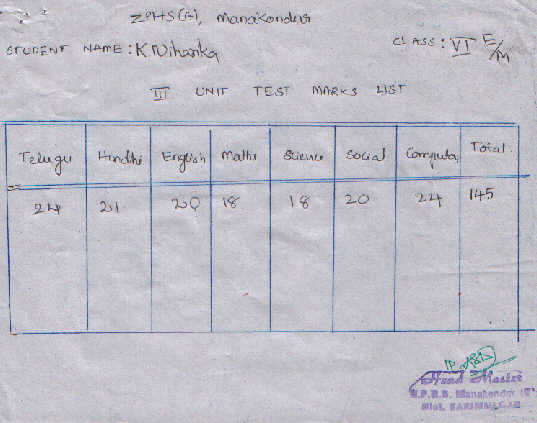 ZPHS(G), Manakondur
STUDENT NAME: K Niharika
CLASS: VI E/M
III UNIT TEST MARKS LIST
Telugu Hindhi English Maths Science Social Computer Total
24 21 20 18 18 20 24 145
Head Master
Manakondur
Dist. KARIMNAGAR